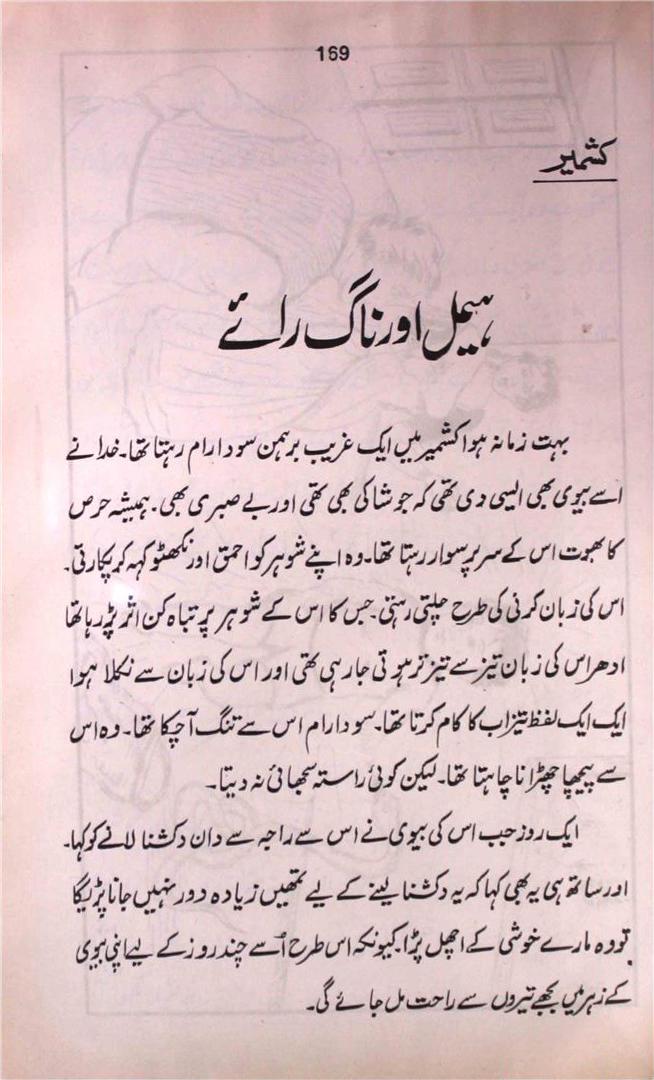 169
کشمیر
ہیمل اور ناگ رائے
بہت زمانہ ہوا کشمیر میں ایک غریب برہمن سودا رام رہتا تھا۔ خدا نے
اسے بیوی بھی ایسی دی تھی کہ جو شاکی بھی تھی اور بے صبری بھی۔ ہمیشہ حرص
کا بھوت اس کے سر پر سوار رہتا تھا۔ وہ اپنے شوہر کو احمق اور نکھٹو کہہ کر پکارتی۔
اس کی زبان کرنی کی طرح چلتی رہتی۔ جس کا اس کے شوہر پر تباہ کن اثر پڑ رہا تھا
ادھر اس کی زبان تیز سے تیز تر ہوتی جا رہی تھی اور اس کی زبان سے نکلا ہوا
ایک ایک لفظ تیزاب کا کام کرتا تھا۔ سودا رام اس سے تنگ آ چکا تھا۔ وہ اس
سے پیچھا چھڑانا چاہتا تھا۔ لیکن کوئی راستہ سجھائی نہ دیتا۔
ایک روز جب اس کی بیوی نے اس سے راجہ سے دان دکشنا لانے کو کہا۔
اور ساتھ ہی یہ بھی کہا کہ یہ دکشنا لینے کے لیے تمھیں زیادہ دور نہیں جانا پڑیگا
تو وہ مارے خوشی کے اچھل پڑا۔ کیونکہ اس طرح اُسے چند روز کے لیے اپنی بیوی
کے زہر میں بجھے تیروں سے راحت مل جائے گی۔